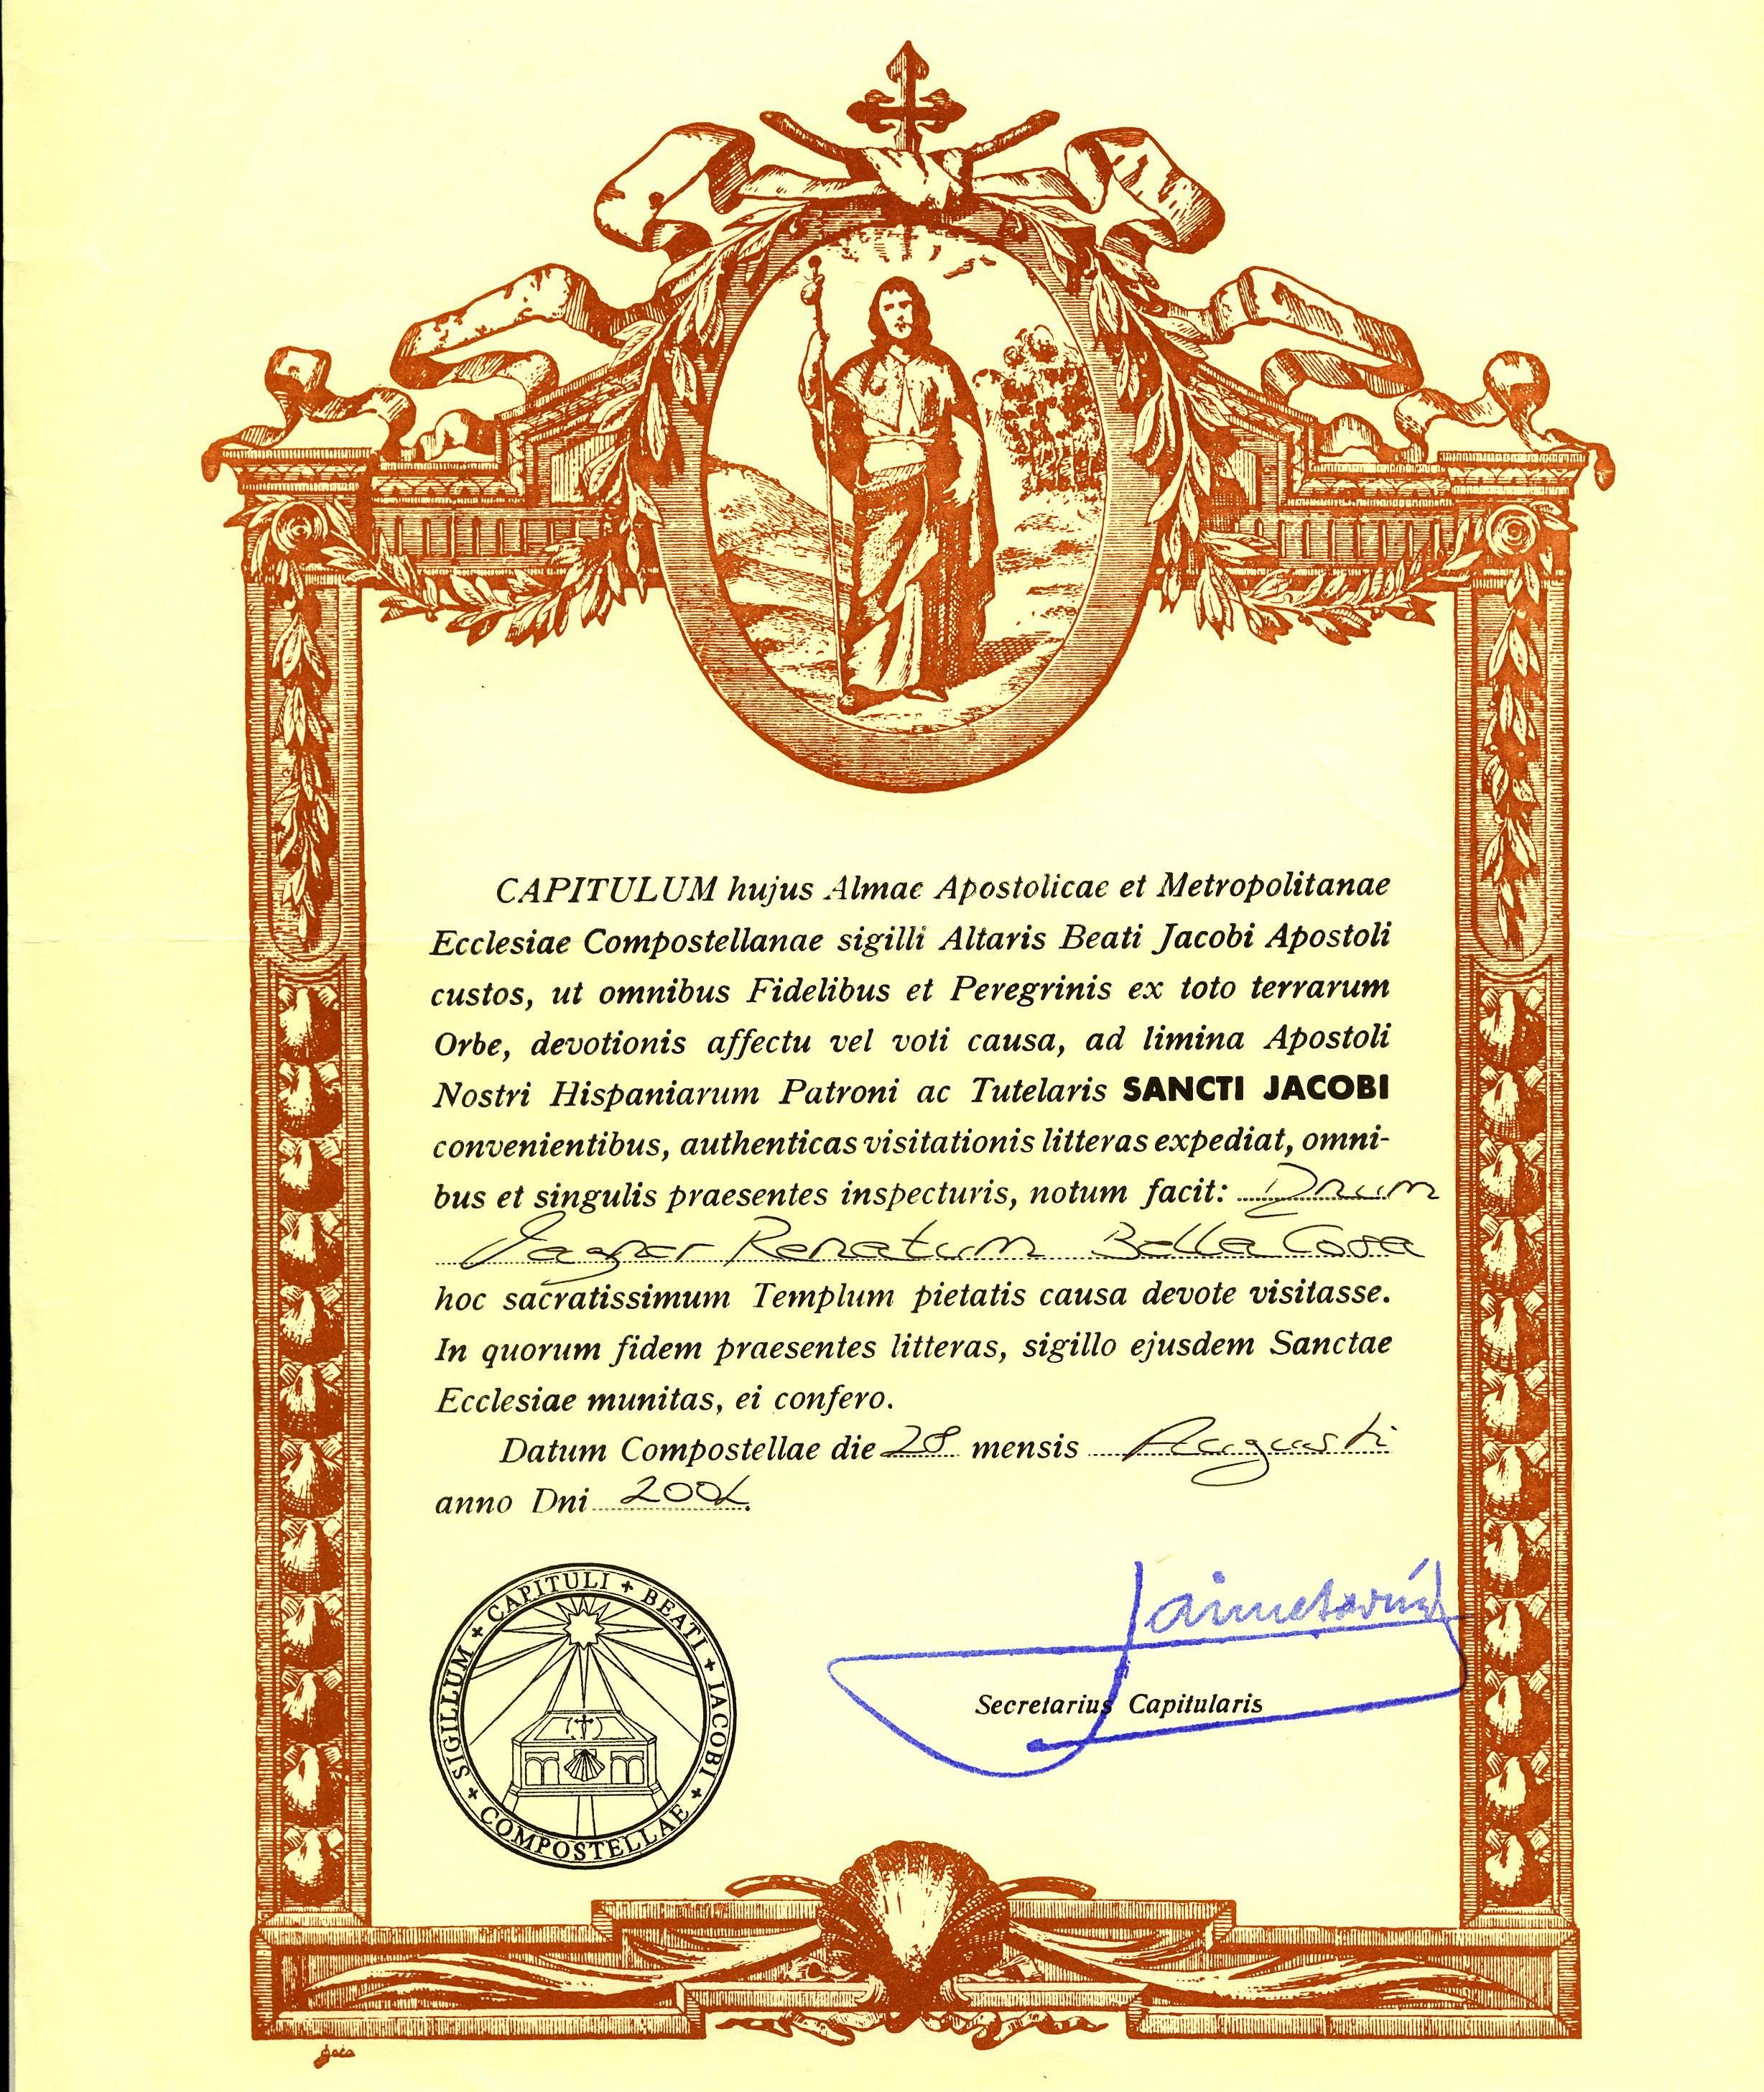 CAPITULUM hujus Almae Apostolicae et Metropolitanae
Ecclesiae Compostellanae sigilli Altaris Beati Jacobi Apostoli
custos, ut omnibus Fidelibus et Peregrinis ex toto terrarum
Orbe, devotionis affectu vel voti causa, ad limina Apostoli
Nostri Hispaniarum Patroni ac Tutelaris SANCTI JACOBI
convenientibus, authenticas visitationis litteras expediat, omni-
bus et singulis praesentes inspecturis, notum facit: Dnum
Renatum Bella Cova
hoc sacratissimum Templum pietatis causa devote visitasse.
In quorum fidem praesentes litteras, sigillo ejusdem Sanctae
Ecclesiae munitas, ei confero.
Datum Compostellae die 28 mensis Augusti
anno Dni
SIGILLUM + CAPITULI + BEATI + IACOBI + COMPOSTELLAE +
Secretarius Capitularis